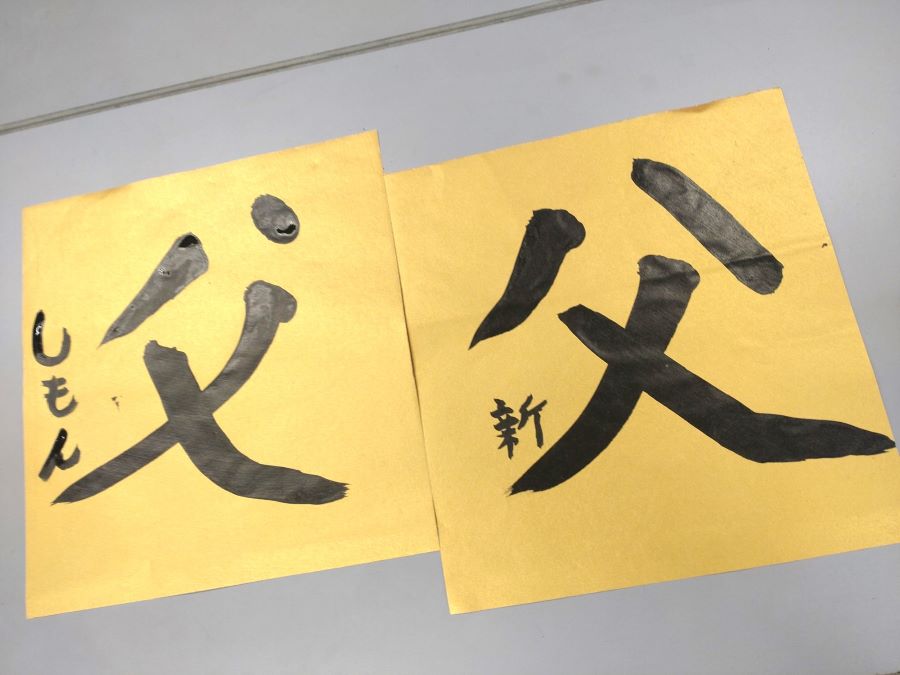 父
しもん
父
新